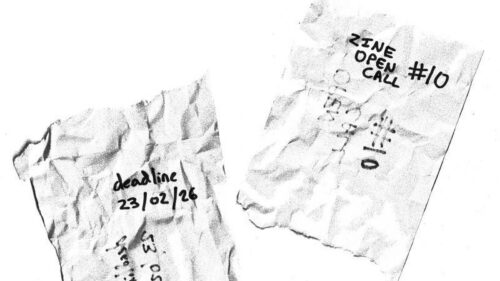 ZINE
OPEN
CALL #10
#10
deadline
23/02/26